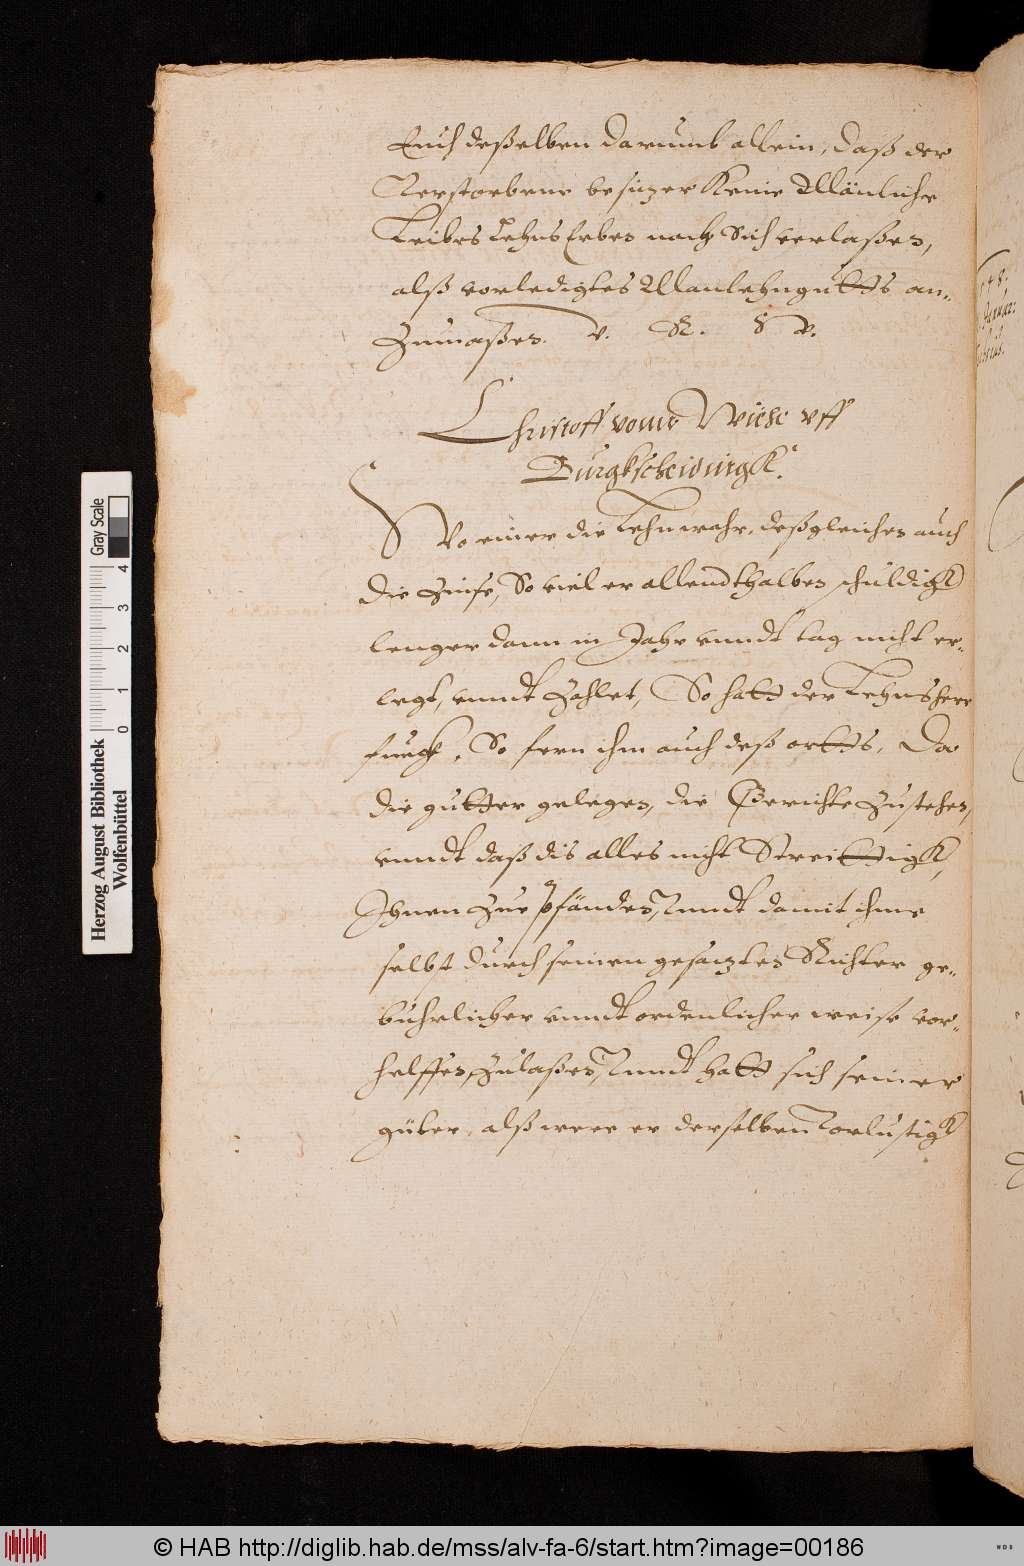 Euch deßelben darumb allein, daß der
Verstorbene besitzer Keine Mänliche
Leibes Lehns Erben nach Sich verlaßen,
alß vorledigtes Manlehnguts an-
Zumaßen. v. R. w.
Christoff vome Wiese vff
Burgkscheidungk.
Wo einer die Lehnwahr, deßgleichen auch
die Zinse, So viel er allendthalben schuldigk
lenger dann in Jahr vnndt tag nicht er-
legt, vnndt Zahlet, So hatt der Lehnsherr
fueg, So fern ihm auch deß ortts, Da
die gutter gelegen, die Gerichte Zustehen,
vnndt daß dis alles nicht Streittigk,
Ihnen Zue pfänden, Vnndt damit ihme
selbst durch seinen gesatzten Richter ge-
buhrlicher vnndt ordenlicher weise vor-
helffen, Zulaßen, Vnndt hatt sich seiner
güter, alß were er derselben Vorlustigk
Gray Scale
0 1 2 3 4
Herzog August Bibliothek
Wolfenbüttel
© HAB http://diglib.hab.de/mss/alv-fa-6/start.htm?image=00186